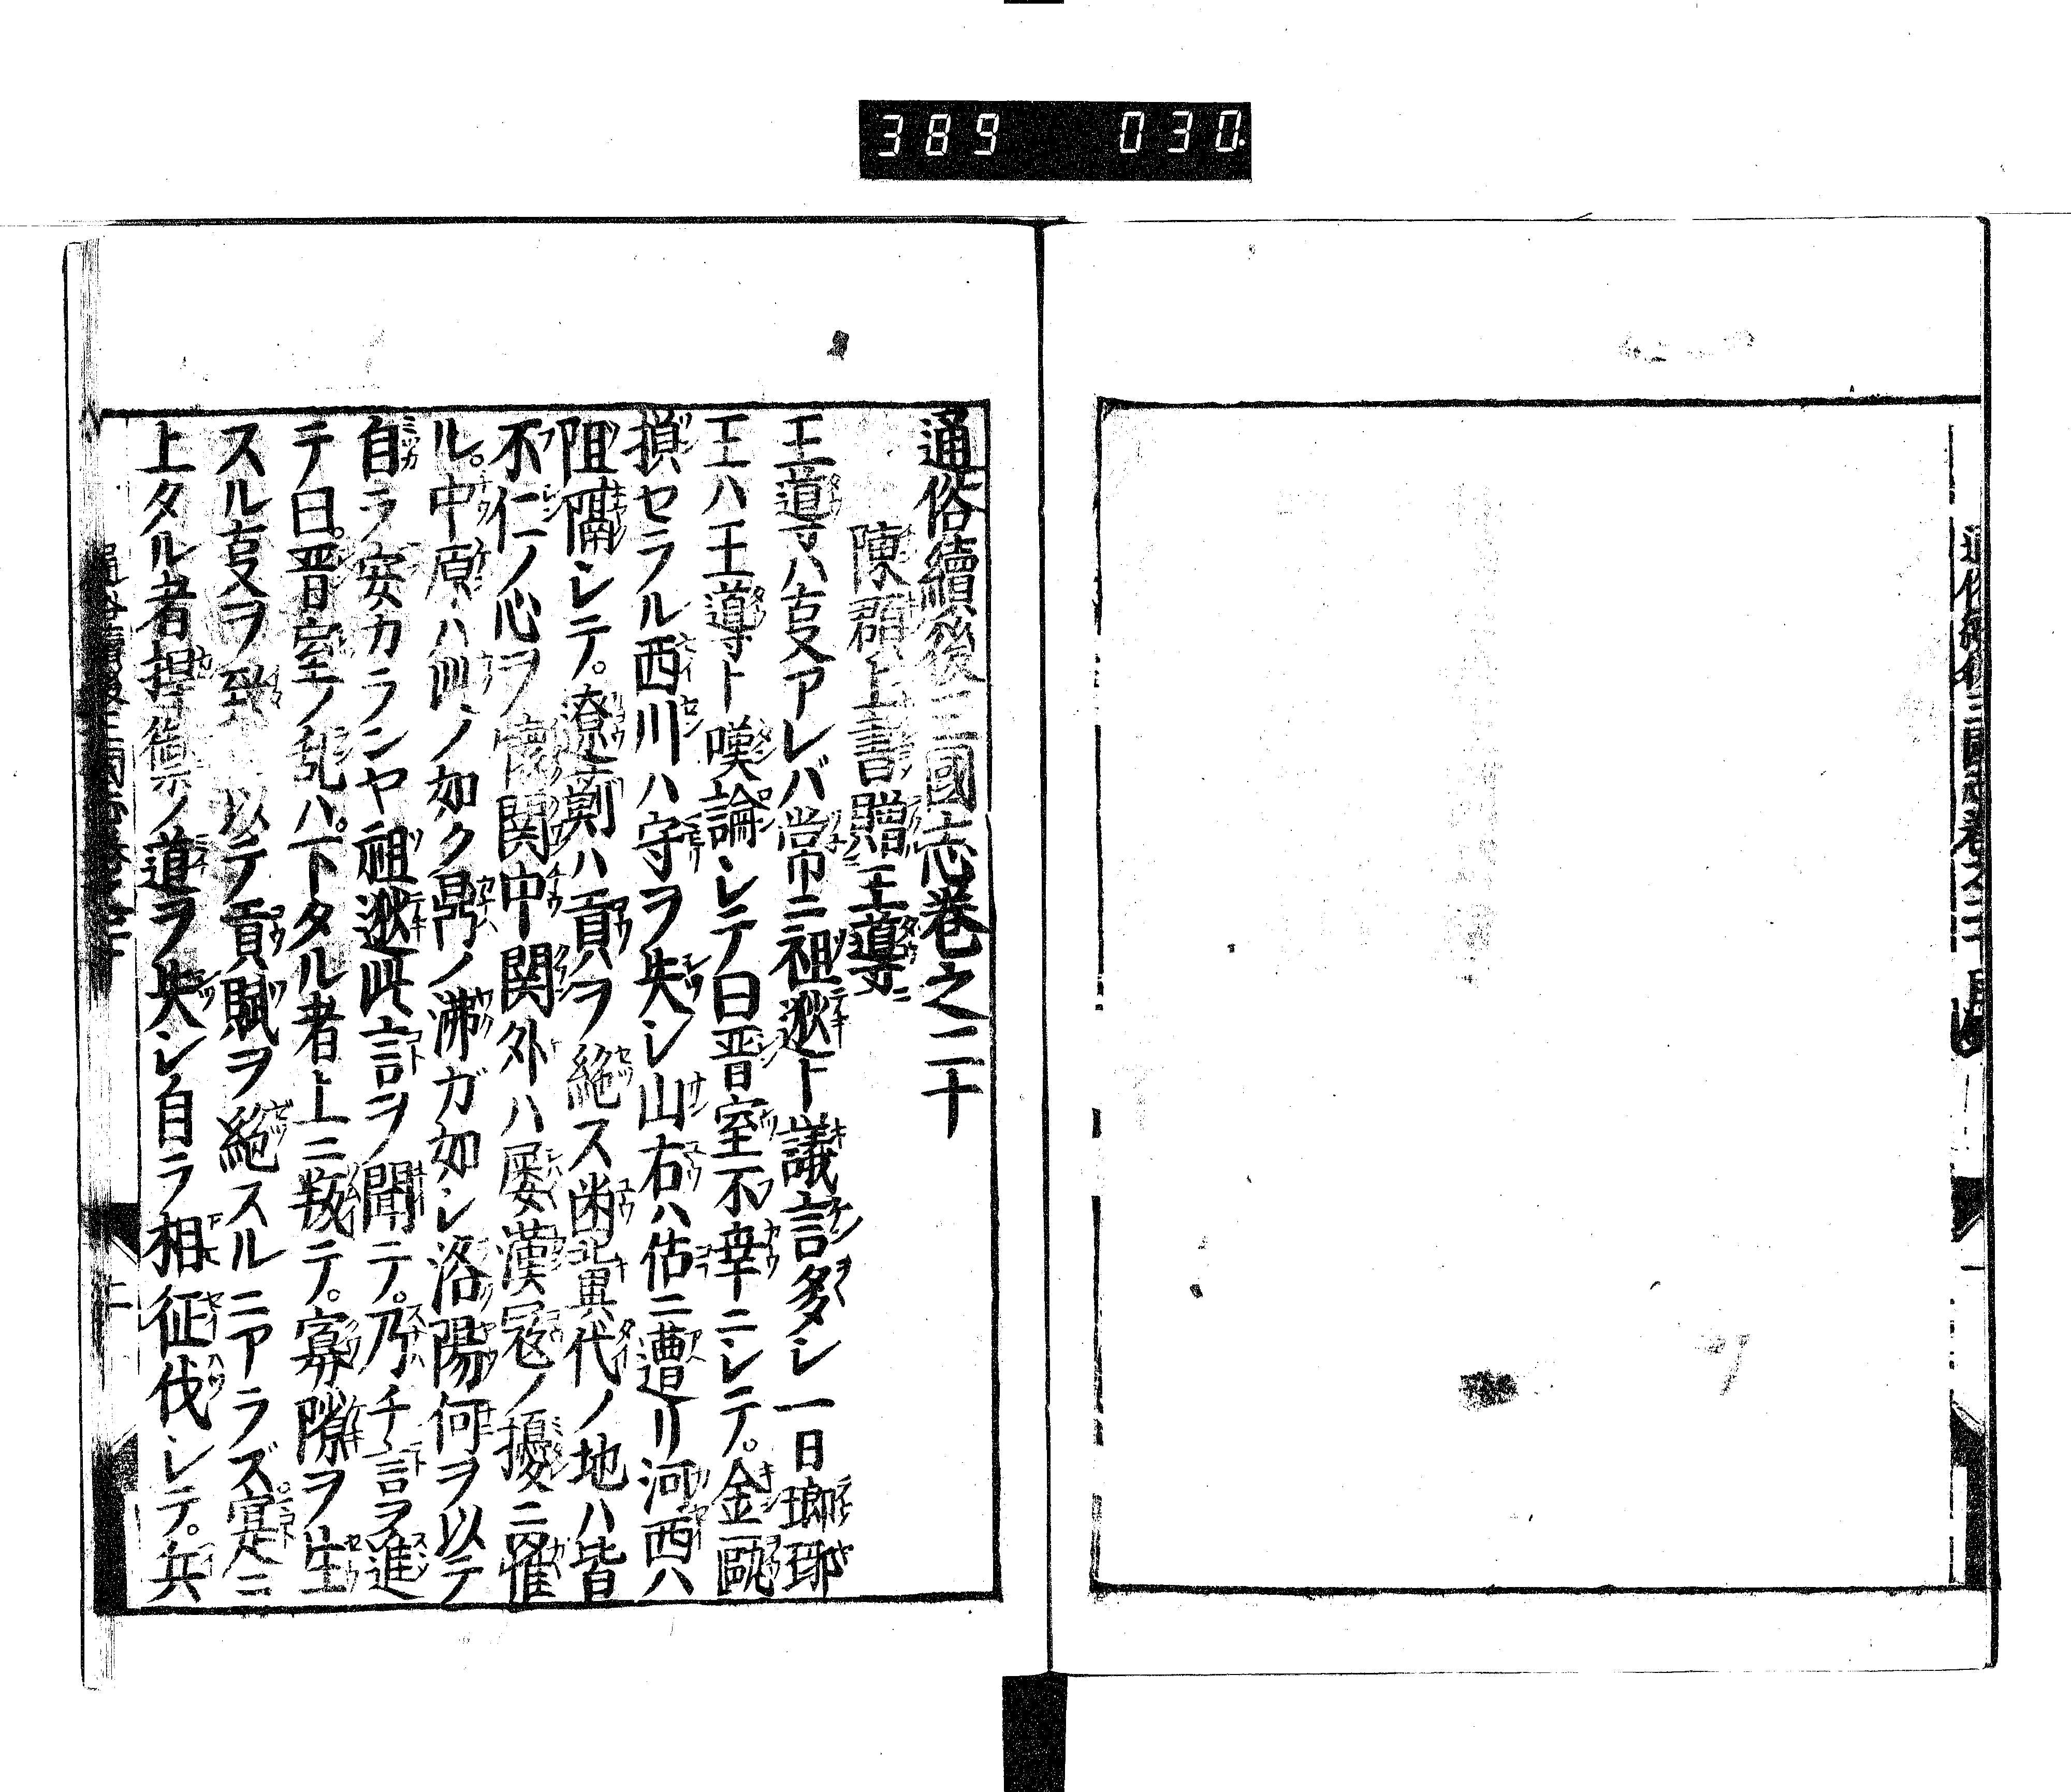 389 030
通俗續後三國志巻之二十
陳頵上書贈王導
王導ハ叓アレバ常ニ祖逖ト議言多シ一日瑯琊
王ハ王導ト嘆論シテ曰晋室不幸ニシテ。金甌
損セラル西川ハ守ヲ失シ山右ハ佔ニ遭リ河西ハ
阻隔シテ。遼薊ハ貢ヲ絶ス幽冀代ノ地ハ皆
不仁ノ心ヲ懐関中関外ハ屡漢冦ノ擾ニ罹
ル。中原ハ此ノ如ク鼎ノ沸ガ如シ洛陽何ヲ以テ
自ラ安カランヤ祖逖此言ヲ聞テ。乃チ言ヲ進
テ曰。晋室ノ乱ハ。下タル者上ニ叛テ。寡隙ヲ生
スル叓ヲ致 以テ貢賦ヲ絶スルニアラズ。寔ニ
上タル者捍禦ノ道ヲ失シ自ラ相征伐シテ。兵